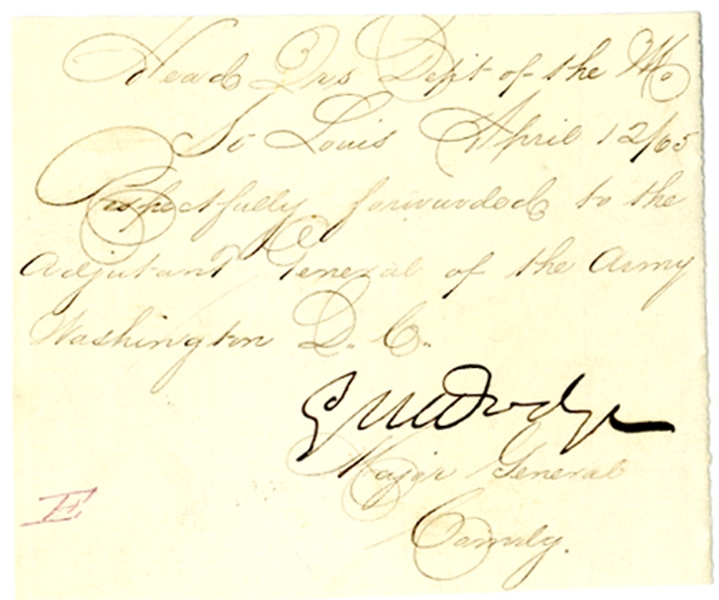 Head Qrs Dept of the Mo
St Louis April 12/65
Respectfully forwarded to the
Adjutant General of the Army
Washington D. C.
G M Dodge
Major General
Comdg.
E